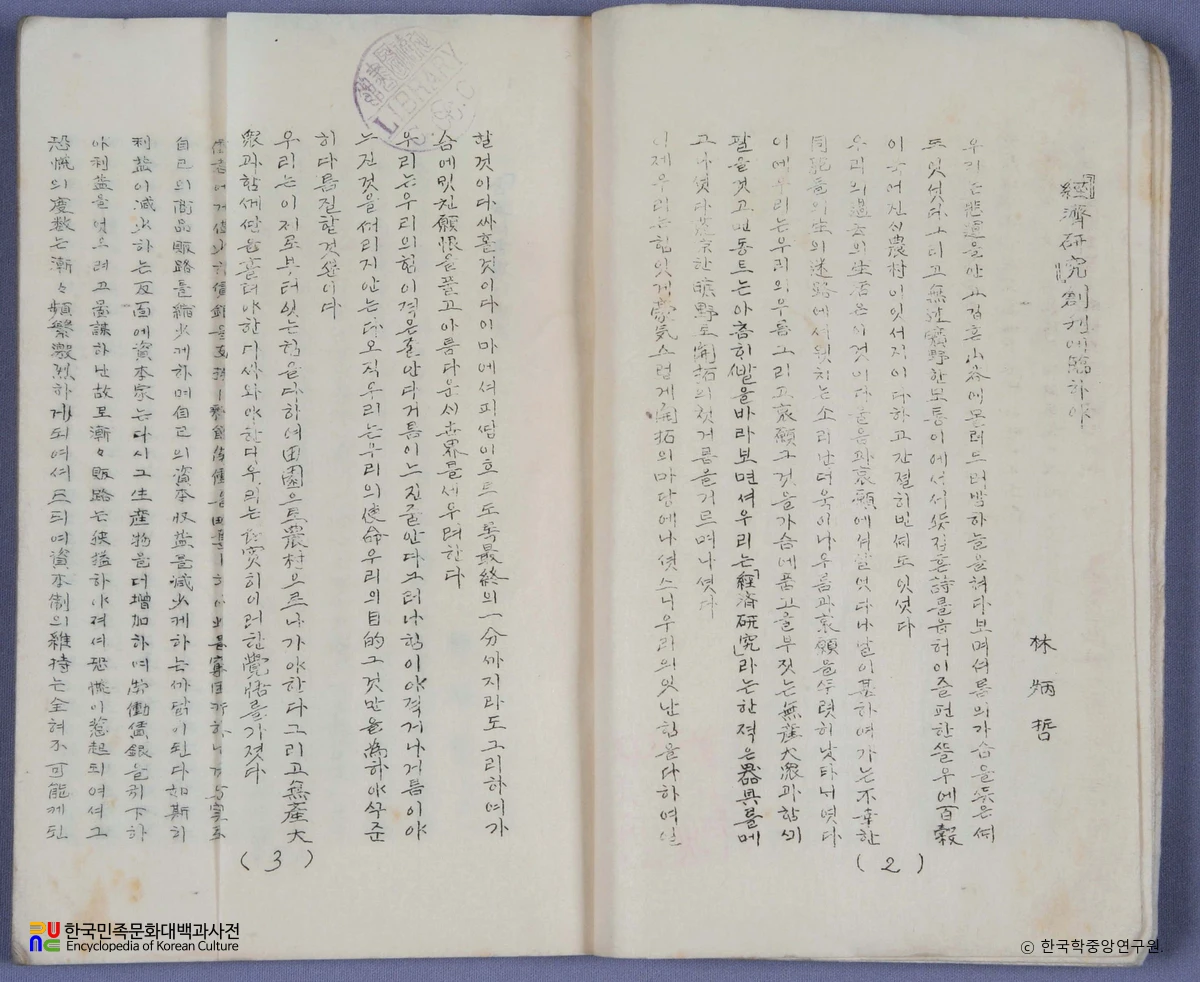 「經濟研究」創刊에臨하야
林炳哲
우리는悲運을안고 집흔山谷에몰려드러밤하늘을쳐다보며셔름의가슴을뜻은때
또잇섯다그리고無 曠野한모퉁이에서서 詩를읇허이즐편한뜰우에百穀
이 農村이잇서지이다하고간절히빈때도잇섯다
우리의過去의生活은이것이다울음과哀願에셔살엇다나날이甚하여가는不幸한
同胞들의生의迷路에서웟치는소리난더욱이나우름과哀願을뚜렷히낫타니엿다
이에우리는우리의우름그리고哀願그것을가슴에품고울부짓는無產大衆과함
팔을것고먼동트는아츰히발을바라보면셔우리는「經済研究」라는한적은器具를메
고나섯다荒凉한曠野로開拓의첫거름을거르며나셧다
이제우리는힘잇게 開拓의마당에나셧스니우리의잇난힘을다하여일
(2)
할것이다싸홀것이다이마에셔피땀이흐르도록最終의一分까지라도그리하여가
슴에밋친願恨을풀고아름다운세世界를세우려한다
우리는우리의힘이적은줄안다거름이느진줄안다그러나힘이야적거나거름이야
느진것을꺼리지안는다오직우리는우리의使命우리의目的그것만을爲하야삭준
히다름질할것뿐이다
우리는이지로부터잇는힘을다하여田園으로農村으로나가야한다그리고無產大
衆과함께땀을흘려야한다싸와야한다우리는 實히이러한覺悟를가졋다
(3)
自己의商品販路를縮少케하며自己의資本収益을減少케하는까닭이된다如斯히
利益이減少하는反面에資本家는다시그生産物을더增加하며労働賃銀을引下하
야利益을엇으려고圖謀하난故로漸々販路는狹搤하야져셔恐慌이惹起되여셔그
恐慌의度数는漸々頻繁激烈하게되여셔드듸여資本制의維持는全혀不可能케된
LIBRARY
한국민족문화대백과사전
Encyclopedia of Korean Culture
ⓒ 한국학중앙연구원.